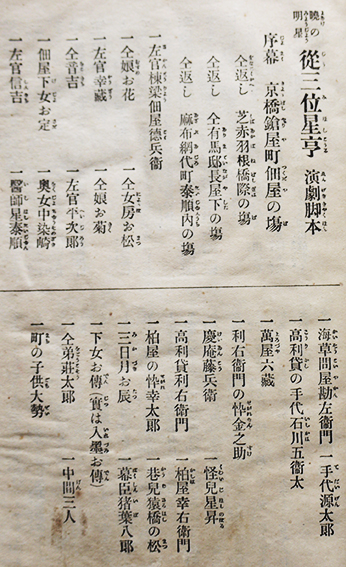 曉の明星 從三位星亨 演劇脚本
序幕 京橋鎗屋町佃屋の塲
仝返し 芝赤羽根橋際の塲
仝返し 仝有馬邸長屋下の塲
仝返し 麻布網代町泰順内の塲
一左官棟梁佃屋德兵衞
一仝娘お花 一仝女房お松
一左官幸藏 一仝娘お菊
一仝音吉 一左官平次郎
一佃屋下女お定 一奥女中染崎
一左官信吉 一醫師星泰順
一海草問屋勘左衞門 一手代源太郎
一高利貸の手代石川五衞太
一萬屋六藏
一利右衞門の悴金之助
一慶庵藤兵衞 一怪兒星昇
一高利貸利右衞門 一柏屋幸右衞門
一柏屋の悴幸太郎 一巷兒猿橋の松
一三日月お辰 一幕臣猪葉八郎
一下女お傳(實は入墨お傳)
一仝弟莊太郎 一中間二人
一町の子供大勢